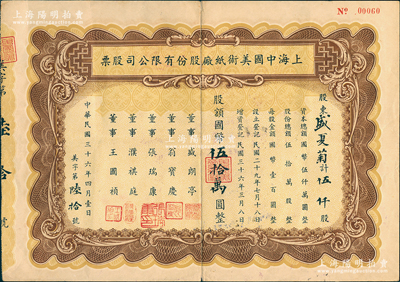 阳明拍卖
www.ymauction.com
No 00060
上海中國美術紙廠股份有限公司股票
股東盛夏菊計伍仟股
資本總額國幣伍仟萬圓整
股份總額伍拾萬股整
每股金額國幣壹百圓整
設立登記民國二十九年七月十八日
增資登記民國三十六年三月八日
股額國幣伍拾萬圓整
董事 盛朗亭
董事 翁寶慶
董事 張瑞康
董事 濮祺庭
董事 王國楨
中華民國三十六年四月壹日
美字第陸拾號